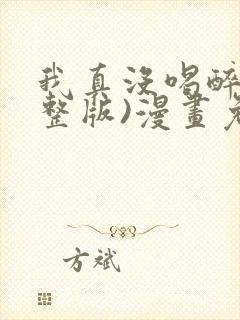 我真没喝醉
整版)漫畫免
方斌